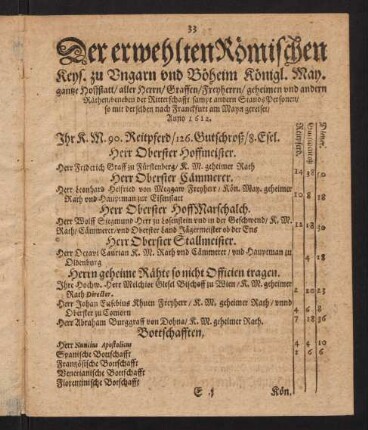 33
Der erwehlten Römischen
Keys. zu Vngarn vnd Böheim Königl. May.
gantze Hoffstatt/ aller Herrn/ Graffen/ Freyherrn/ geheimen vnd andern
Räthen/ beneben der Ritterschafft sampt andern StandsPersonen/
so mit derselben nach Franckfurt am Mayn gereiset/
Anno 1612.
Ihr K. M. 90. Reitpferd/ 126. Gutschroß/ 8. Esel.
Herr Oberster Hoffmeister.
Herr Friderich Graff zu Fürstenberg/ K. M. geheimer Rath
Herr Oberster Cämmerer.
Herr Leonhard Helfried von Meggaw Freyherr/ Kön. May. geheimer
Rath vnd Hauptman zur Eisenstatt
Herr Oberster HoffMarschalch.
Herr Wolff Siegmund Herr zu Losenstein vnd in der Geschwend/ K. M.
Rath/ Cämmerer/ vnd Oberster Land Jägermeister ob der Ens
Herr Oberster Stallmeister.
Herr Octavi Caurian K. M. Rath vnd Cämmerer/ vnd Hauptman zu
Oldenburg
Herrn geheime Rähte so nicht Officien tragen.
Ihre Hochw. Herr Melchior Glesel Bischoff zu Wien/ K. M. geheimer
Rath Director.
Herr Johan Eusebius Khuen Freyherr/ K. M. geheimer Rath/ vnnd
Oberster zu Comorn
Herr Abraham Burggraff von Dohna/ K. M. geheimer Rath.
Bottschafften,
Herr Nuncius Apostolicus
Spanische Bottschafft
Frantzösische Bottschafft
Venetianische Bottschafft
Florentinische Botschafft
Kön.